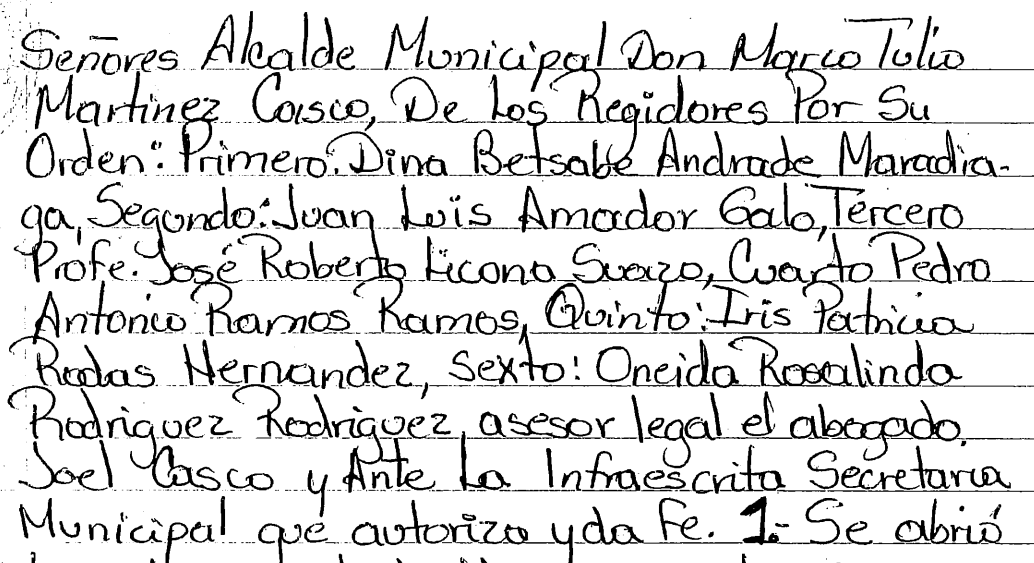 Señores Alcalde Municipal Don Marco Tulio
Martinez Casco, De Los Regidores Por Su
Orden: Primero: Dina Betsabe Andrade Maradia-
ga, Segundo: Juan Luis Amador Galo, Tercero
Profe. José Roberto Licona Suazo, Cuarto Pedro
Antonio Ramos Ramos, Quinto: Iris Patricia
Rodas Hernandez, Sexto: Oneida Rosalinda
Rodriguez Rodriguez, asesor legal el abogado.
Joel Casco y Ante La Infraescrita Secretaria
Municipal que autoriza y da Fe. 1.- Se abrió